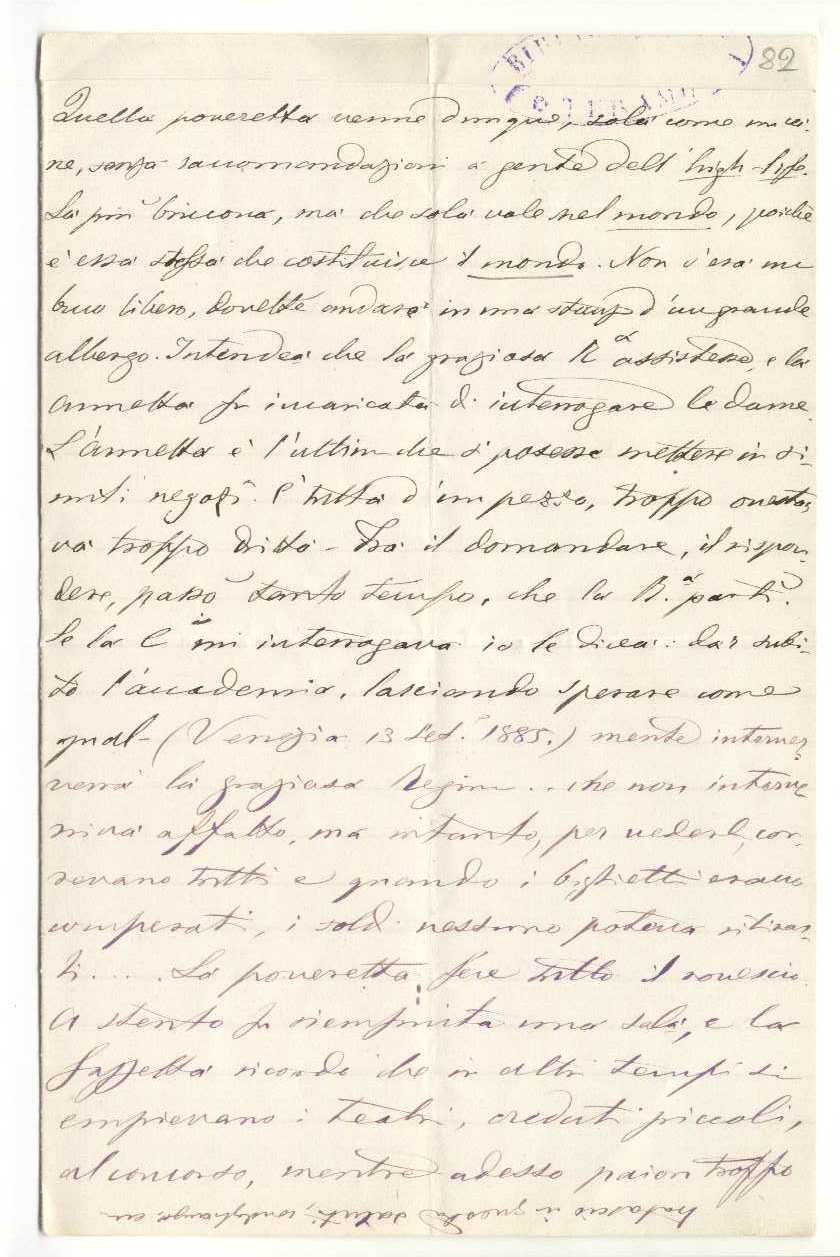 82
Quella poveretta venne dunque, sola come un ca-
ne, senza raccomandazioni a gente dell'high-life.
La più briccona, ma che sola vale nel mondo, poichè
è essa stessa che costituisce il mondo. Non c'era un
buco libero, dovette andare in una d'un grande
albergo. Intendea che la graziosa Rª assistesse, e la
Annetta fu incaricata di interrogare le dame.
L'Annetta è l'ultima che si potesse mettere in si-
mili negozî. È tutta d'un pezzo, troppo onesta,
va troppo dritta - Tra il domandare, il rispon-
dere, passò tanto tempo, che la R.ª partì.
Se la C mi interrogava io le dicea: dai subi-
to l'accademia, lasciando sperare come
qual- (Venezia 13 Set. 1885.) mente interve
verrà la graziosa Regina .. che non interve
niva affatto, ma intanto, per vederla, cor-
revano tutti e quando i biglietti erano
comperati, i soldi nessuno poteva ritirar-
li .... La poveretta fece tutto il rovescio.
A stento fu riempiuta una sala, e la
Gazzetta ricordò che in altri tempi si
empievano i teatri, creduti piccoli,
al concorso, mentre adesso paion troppo
tralascio in questa saluti,